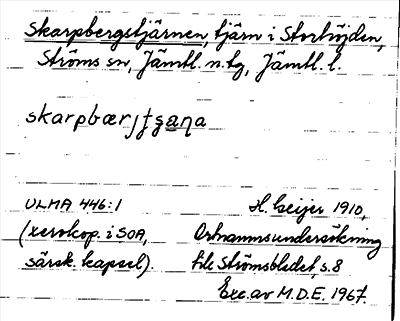 Skarpbergstjärnen, tjärn i Storhöjden,
Ströms sn, Jämtl. n. tg, Jämtl. l.
skarpbærʃtʂaɳa
ULMA 446:1 H. Geijer 1910,
(xerokop. i SOA, Ortnamnsundersökning
särsk. kapsel). till Strömsbladet, s. 8
Exc. av M.D.E. 1967.